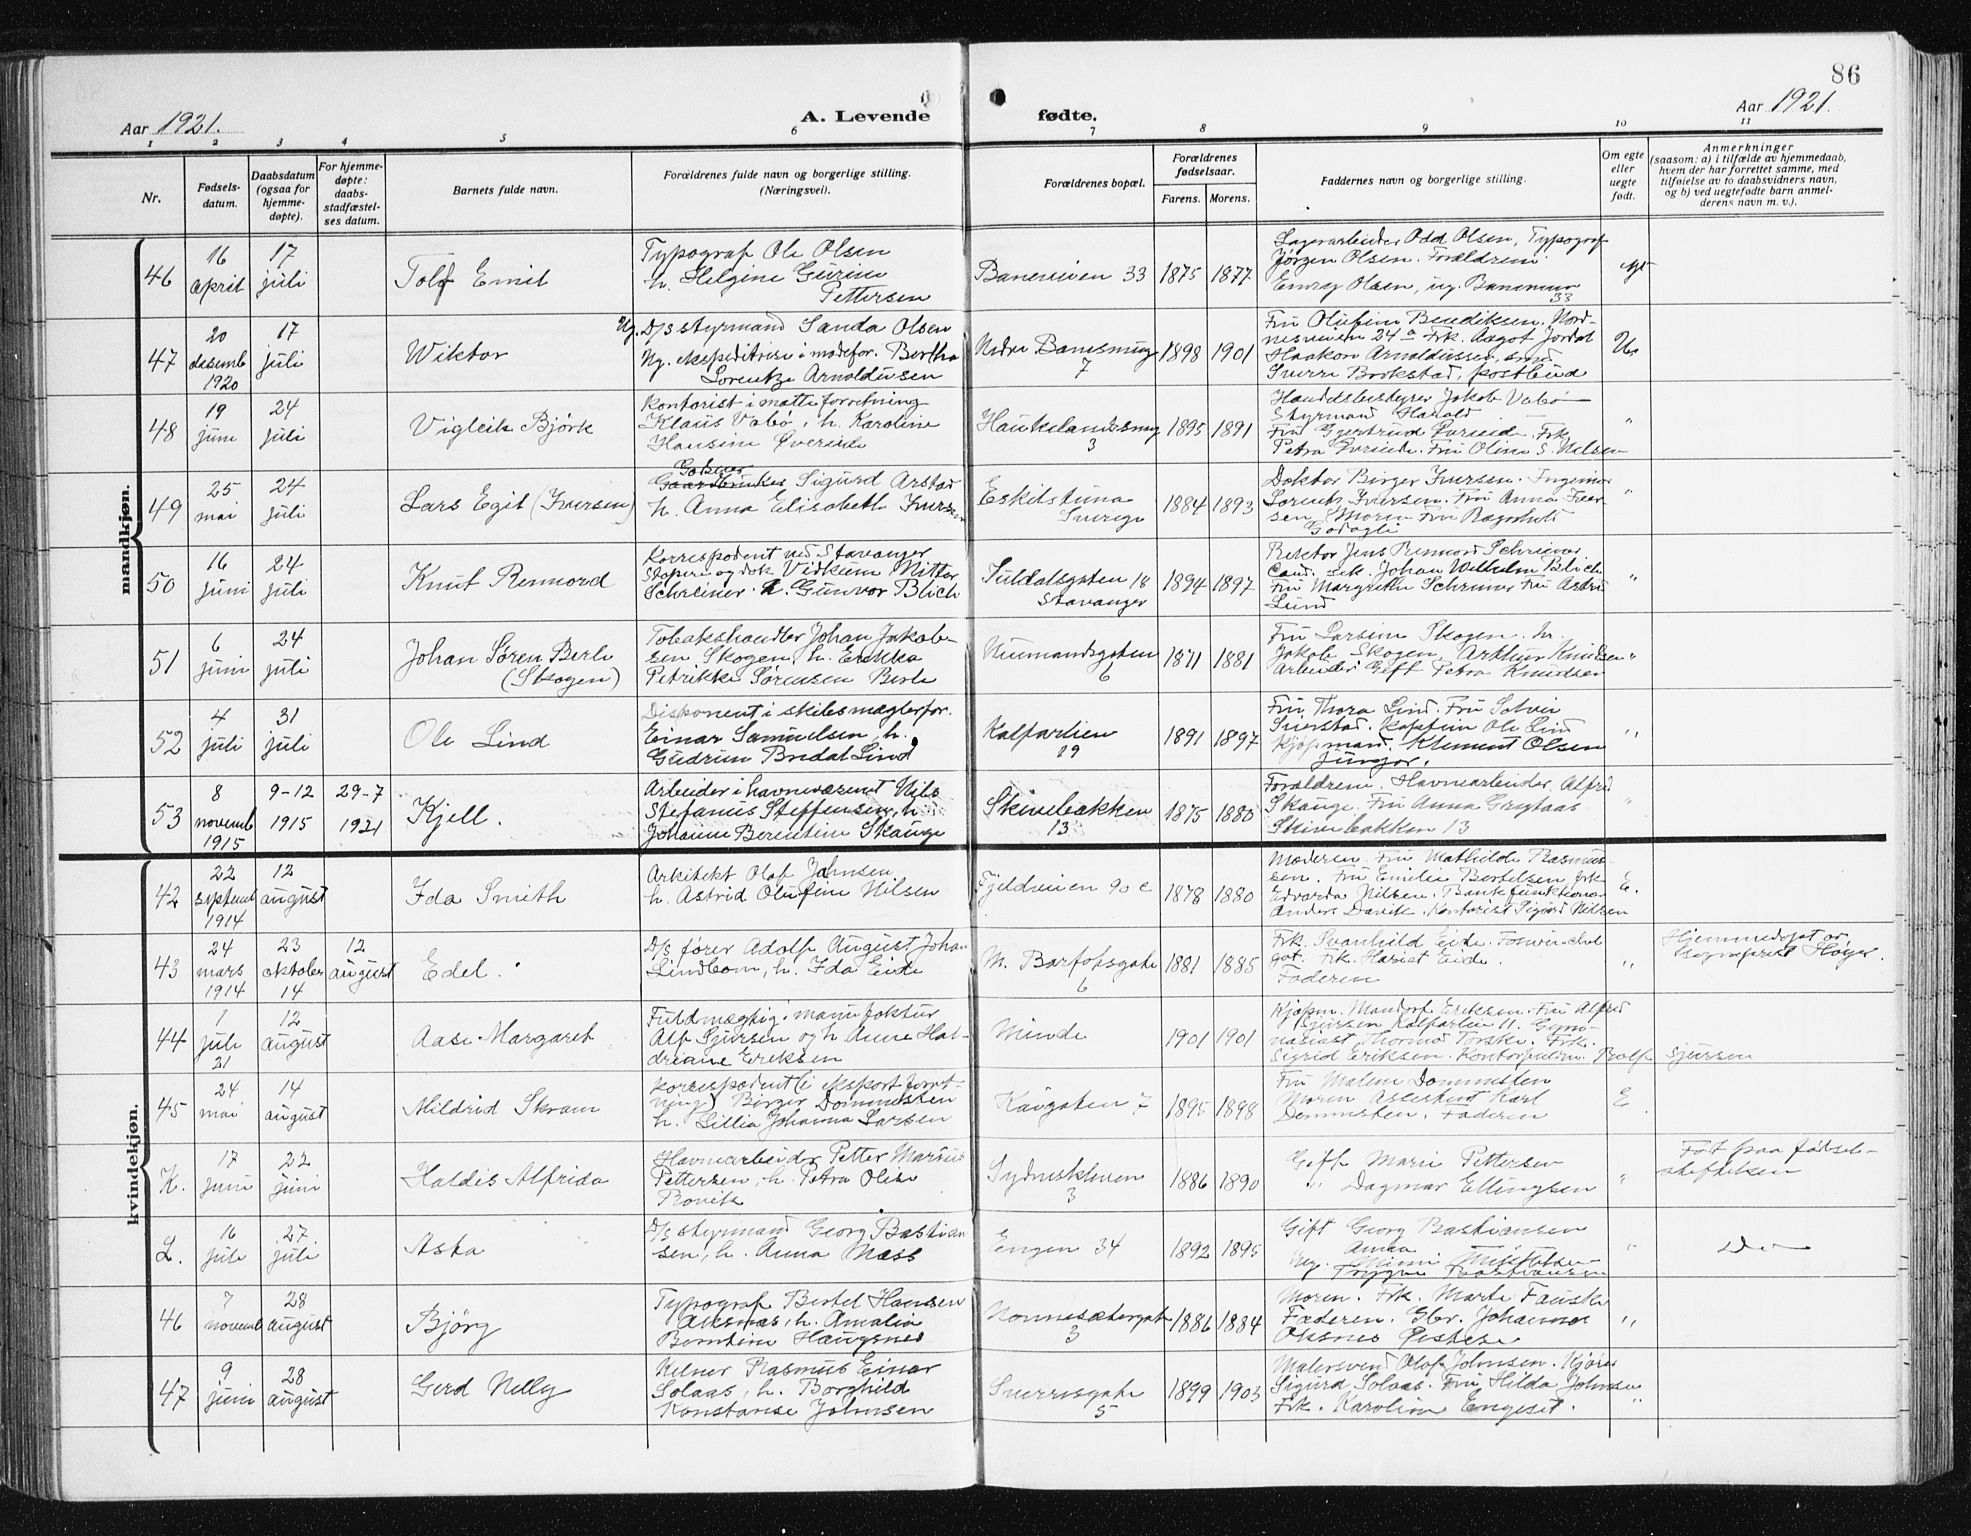 86
Aar 1921.
A. Levende fødte.
Aar 1921.
1 2 3 4 5 6 7 8 9 10 11
Nr.
Fødsels-
datum.
Daabsdatum
(ogsaa for
hjemme-
døpte).
For hjemme-
døpte:
daabs-
stadfæstel-
ses datum.
Barnets fulde navn.
Forældrenes fulde navn og borgerlige stilling.
(Næringsvei).
Forældrenes bopæl.
Forældrenes
fødselsaar.
Farens. Morens.
Faddernes navn og borgerlige stilling.
Om egte
eller
uegte
født.
Anmerkninger
(saasom: a) i tilfælde av hjemmedaab,
hvem der har forrettet samme, med
tilføielse av to daabsvidners navn,
og b) ved uegtefødte barn anmel-
derens navn m. v.).
mandkjøn.
46
16
april
17
juli
Tolf Emil
Typograf Ole Olsen
h. Helgine Gurine
Pettersen
Baneveien 33
1875 1877
Lagerarbeider Odd Olsen, Typograf
Jørgen Olsen. Forældrene
Olsen, ug. Baneveien
33
47
20
desemb
1920
17
juli
Wiktor
Ug. D/s styrmand Sanda Olsen
Ug. ekspeditrise i motefor. Bertha
Lorentze Arnoldussen
Nedre Banesmug
7
1898 1901
Fru Olufine Bendiksen. Nord-
nesveien 24a Frk. Aagot Jordal
Haakon Arnoldussen, smed
Sverre Brokstad, postbud
Ue
48
19
juni
24
juli
Vigleik Bjørk
Kontorist i matteforretning
Klaus Vabø, h. Karoline
Hansine Øvreeide
Haukelandssmug
3
1895 1891
Handelsbestyrer Jakob Vabø
Styrmand Harald
Fru Gjertrud Øvreeide. Frk.
Petra Øvreeide. Fru Oline S. Nilsen
"
49
25
mai
24
juli
Lars Egil (Iversen)
Gaardbruker Sigurd Arstad
h. Anna Elisabeth Iversen
Eskilstuna
Sverige
1884 1893
Doktor Birger Iversen. Ingeniør
Lorentz Iversen. Fru Anna Iver-
sen, Moren Fru Ragnhild
"
50
16
juni
24
juli
Knut Rennord
Korrespodent ved Stavanger
Støperi og dok Vidkunn Mitter
Schreiner h. Gunvor Blich
Suldalsgaten 18
Stavanger
1894 1897
Rektor Jens Rennord Schreiner.
Cand. Johan Wilhelm Blich
Fru Margrethe Schreiner Fru Astri
Lund
"
51
6
juni
24
juli
Johan Søren Berle
(Skogen)
Tobakshandler Johan Jakob-
sen Skogen, h. Erikka
Petrikke Sørensen Berle
Neumandsgaten
6
1871 1881
Fru Larsine Skogen. hr.
Jakob Skogen. Arthur Knudsen
arbeider Gift Petra Knudsen
"
52
4
juli
31
juli
Ole Lind
Disponent i skibsmæglerfor.
Einar Samuelsen, h.
Gudrun Bredal Lind
Kalfarlien
19
1891 1897
Fru Thora Lind. Fru Solvei
Sverstad. Kaptein Ole Lind
Kjøpmand. Klement Olsen
Jungor.
"
53
8
novemb
1915
9-12
1915
29-7
1921
Kjell.
Arbeider i havnevæsenet Nils
Stefanus Steffensen, h.
Johanne Berentine Skauge
Skivebakken
13
1875 1880
Forældrene. Havnearbeider Alfred
Skauge. Fru Anna Grytaas
Skivebakken 13
"
kvindekjøn.
42
22
septemb
1914
12
august
Ida Smith
Arkitekt Olaf Johnsen
h. Astrid Olufine Nilsen
Fjeldveien 90 c
1878 1880
Moderen. Fru Mathilde Rasmus-
sen. Fru Emilie Bertelsen frk
Edvarda Nilsen. Bankfunktionær
Anders Davik. Kontorist Sigurd Nilsen
E.
43
24
mars
1914
23
oktober
14
12
august
Edel.
D/s fører Adolf August Johan
Lindbom, h. Ida Eide
M. Barfotsgate
6
1881 1885
Frk. Svanhild Eide.
Frk. Hariet Eide.
Faderen
"
Hjemmedøpt av
sogneprest Høyer.
44
1
juli
21
12
august
Aase Margaret
Fuldmægtig i manufaktur
Alf Sjursen og h. Anne Hal-
driane Eriksen
Minde
1901 1901
Kjøpm. Mandorf Eriksen. Fru Alfred
Sjursen Kalfarlien 11. Gym-
nasiast Thormod Torske. Frk.
Sigrid Eriksen. Rolf Sjursen
45
24
mai
14
august
Mildrid Skram
Korrespodent i eksportforret-
ning Birger Dommesten
h. Lillia Johanna Larsen
Kaigaten 7
1895 1898
Fru Malene Dommesten
Moren Karl
Dommesten. Faderen
E
K.
17
juni
22
juni
Haldis Alfrida
Havnearbeider Petter Marius
Pettersen, h. Petra Oline
Rovik
Sydneskleven
3
1886 1890
Gift Marie Pettersen
" Dagmar Ellingsen
"
Føt paa fødsels-
stiftelsen
L.
16
juli
27.
juli
Aska
D/s styrmand Georg Bastian-
sen, h. Anna Næss
Engen 34
1892 1895
Gift Georg Bastiansen
Anna
Ug. Minni
Trygve Bastiansen
"
Do
46
7
novemb
28
august
Bjørg
Typograf Bertel Hansen
Øksnæs, h. Amalia
Berntine Haugsnes
Nonnesætergate
3
1886 1884
Moren. Frk. Marte Fauske
Faderen. Gbr. Johannes
Øksnes
"
47
9
juni
28
august
Gerd Nelly
Kelner Rasmus Einar
Solaas, h. Borghild
Konstanse Johnsen
Sverresgate
5
1899 1903
Malersvend Olaf Johnsen. Kjører
Sigurd Solaas. Fru Hilda Johnsen
Frk. Karoline Engeset.
"